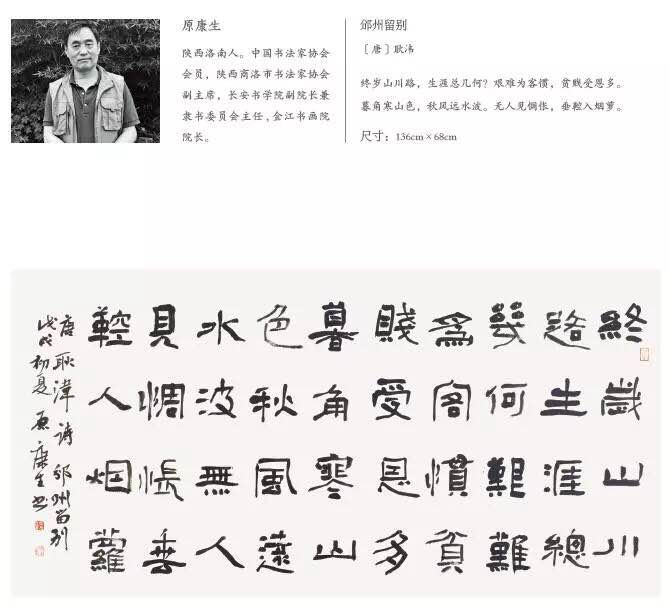 原康生
陕西洛南人。中国书法家协会
会员，陕西商洛市书法家协会
副主席，长安书学院副院长兼
隶书委员会主任、金江书画院
院长。
邠州留别
［唐］耿湋
终岁山川路，生涯总几何？艰难为客惯，贫贱受恩多。
暮角寒山色，秋风远水波。无人见惆怅，垂鞚入烟萝。
尺寸：136cm×68cm
終歲山川
路生涯總
幾何艱難
爲客慣貧
賤受恩多
暮角寒山
色秋風遠
水波無人
見惆悵垂
鞚入烟蘿
唐耿湋詩邠州留别
戊戌初夏原康生书